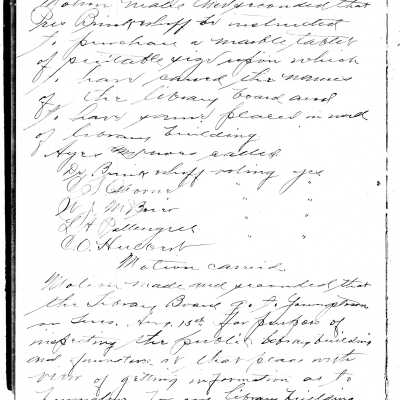 Motion made and seconded that
Pres Brinkerhoff be instructed
to purchase a marble tablet
of suitable size upon which
to have carved the names
of the library board and
to have same placed in
of library building
Ayes called
Dr Brinkerhoff voting yes
" "
W. J. " "
L. H. " "
C. O. " "
Motion carried.
Motion made and seconded that
the Library Board go to Youngstown
on Aug. 15th for purpose of
inspecting the public library building
and furniture at that place with
view of getting information as to
furniture for our library building